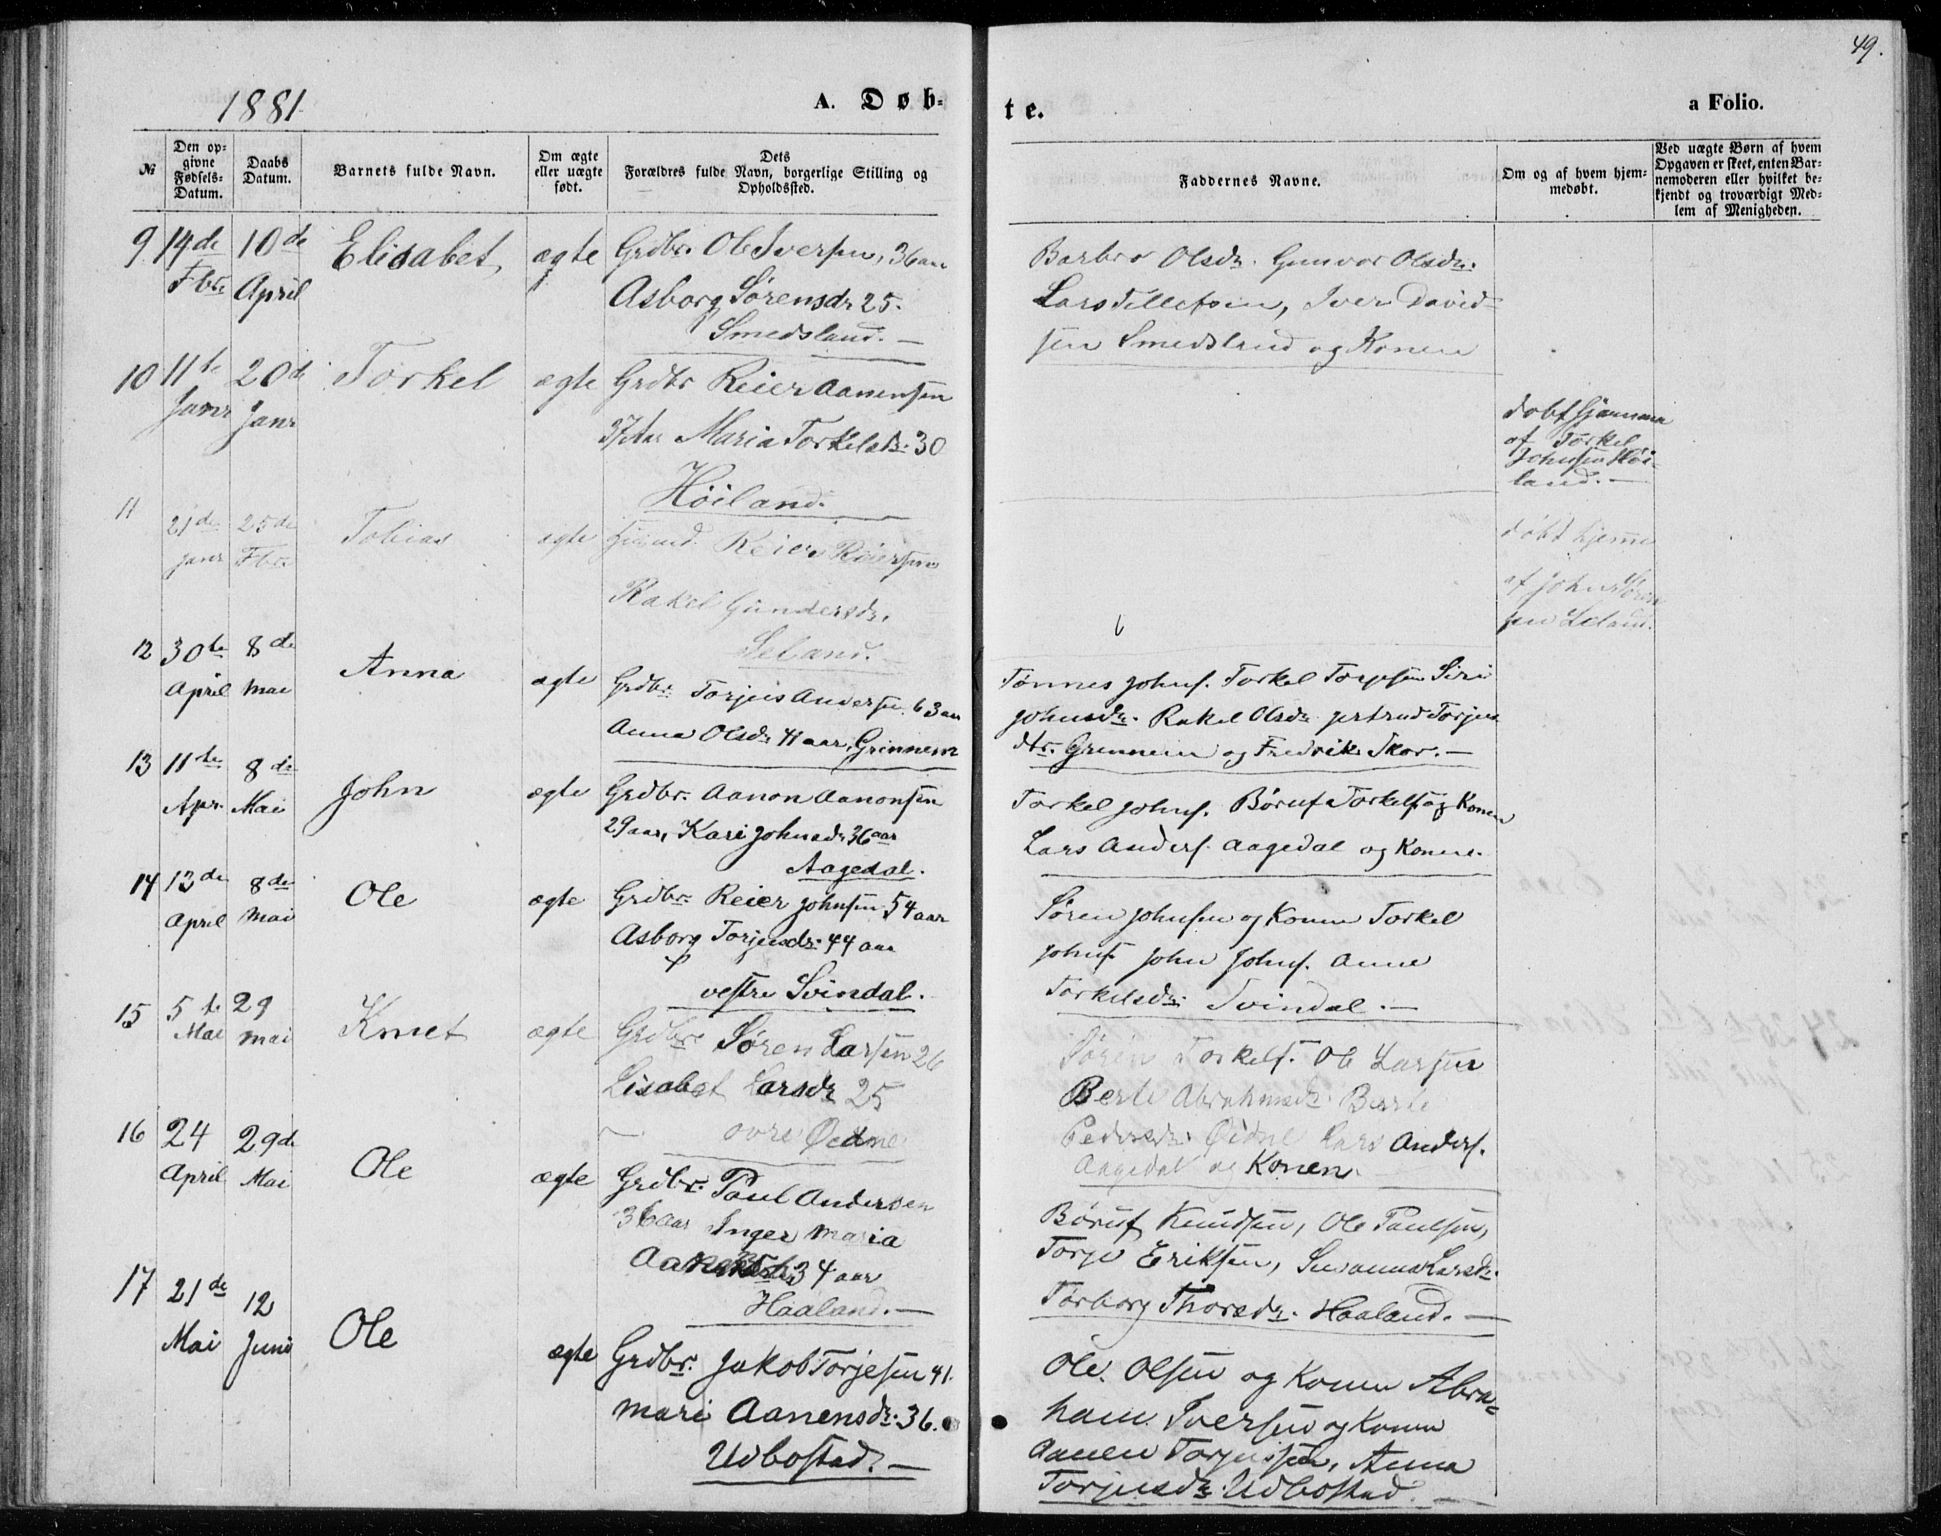 49.
1881.
A. Døb-
te.
a Folio.
№
Den op-
givne
Fødsels-
Datum.
Daabs
Datum.
Barnets fulde Navn.
Om ægte
eller uægte
født.
Dets
Forældres fulde Navn, borgerlige Stilling og
Opholdssted.
Faddernes Navne.
Om og af hvem hjem-
medøbt.
Ved uægte Børn af hvem
Opgaven er skeet, enten Bar-
nemoderen eller hvilket be-
kjendt og troværdigt Med-
lem af Menigheden.
9 14de 10de Elisabet ægte Grdbr. Ole Iversen, 36 aar
Fbr April Asborg Sørensdr 25.
Smedsland. —
Barbro Olsdr. Gunvor Olsdr.
Lars Tellefsen, Iver David-
sen Smedsland og Konen
10 11te 20de Torkel ægte Grdbr Reier Aanensen
Janr Janr 37 Aar Maria Torkelsdr: 30
Høiland.
døbt hjemme
af Torkel
Johnsen Høi-
land. —
11 21de 25de Tobias ægte Reier Reiersen
janr Fbr Rakel Gundersdr.
Seland.
døbt hjemme
af John Søren
sen Seland.
12 30te 8de Anna ægte Grdbr. Torjus Andersen 63 aar
April Mai Anna Olsdr 41 aar, Grinnem
Tønnes Johns. Torkel Torjusen Siri
Johnsdr. Rakel Olsdr. Torjus
dtr. Grennem og Fredrik Skov. —
13 11te 8de John ægte Grdbr. Aanon Aanonsen
Apr. Mai 29 aar, Kari Johnsdr 36 aar
Aagedal.
Torkel Johns. Børuf Torkels og Konen
Lars Anders. Aagedal og Konen.
14 13de 8de Ole ægte Grdbr. Reier Johnsen 54 aar
April Mai Asborg Torjusdr. 44 aar
vestre Svindal.
Søren Johnsen og Konen Torkel
Johns John Johns. Anne
Torkelsdr. Svindal. —
15 5te 29 Knut ægte Grdbr. Søren Larsen 26
Mai Mai Lisabet Larsdr 25
øvre Øidne
Søren Torkels. Ole Larsen
Berte Abrahmsdr. Berte
Pedersdr. Øidne Lars Anders.
Aagedal og Konen.
16 24 29de Ole ægte Grdbr. Paul Andersen
April Mai 36 aar Inger Maria
34 aar
Haaland. —
Børuf Knudsen, Ole Paulsen,
Torje Eriksen, Susanna Larsdr.
Torborg Thorsdr. Haaland. —
17 21de 12 Ole ægte Grdbr. Jakob Torjesen 41.
Mai Juni Mari Aanensdr. 36.
Udbostad. —
Ole Olsen og Konen Abra-
ham Iversen og Konen
Aanen Torjussen, Anna
Torjusdr. Udbostad. —